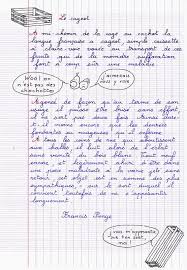 Le cageot
A mi-chemin de la cage au cachot la
langue française a cageot, simple caissette
à claire-voie vouée au transport de ces
fruits qui de la moindre suffocation
font à coup sûr une maladie.
Woo! on
est pas des
chochottes
J'aimerais
vous y voir
Agencé de façon qu'au terme de son
usage il puisse être brisé sans effort, il
ne sert pas deux fois. Ainsi dure-
t-il moins encore que les denrées
fondantes ou nuageuses qu'il enferme.
A tous les coins de rues qui aboutissent
aux halles il luit alors de l'éclat
sans vanité du bois blanc. Tout neuf
encore, et légèrement ahuri d'être dans
une pose maladroite à la voirie jeté sans
retour, cet objet est en somme des plus
sympathiques, - sur le sort duquel il
convient toutefois de ne s'appesantir
longuement.
Francis Ponge